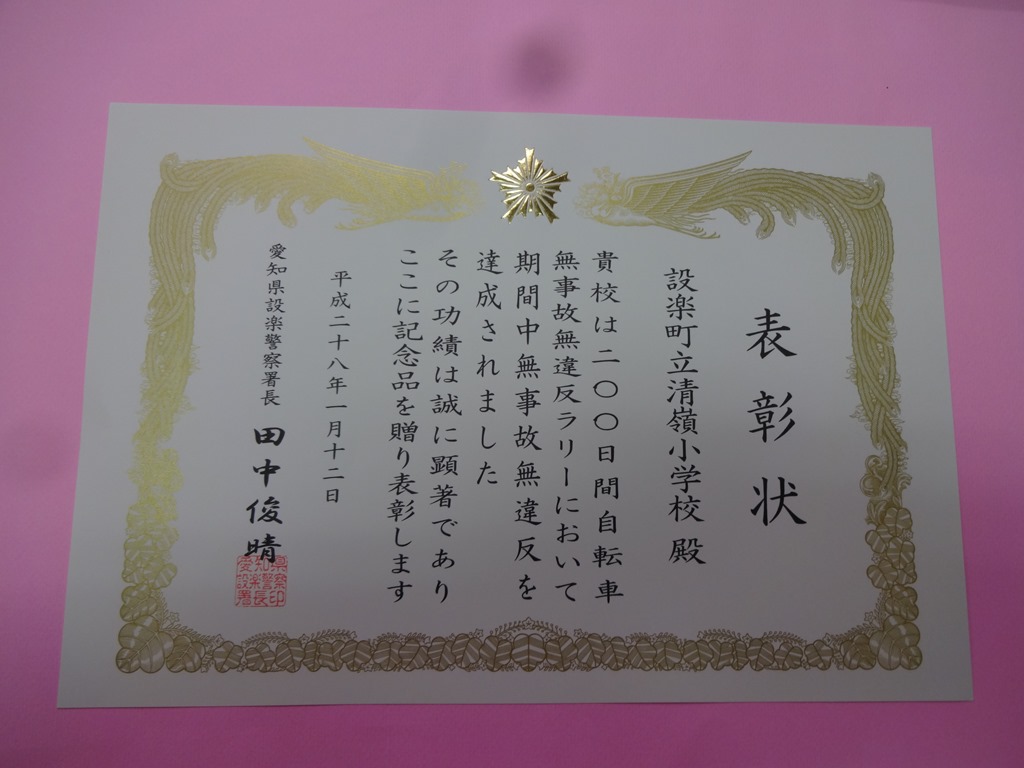 表彰状
設楽町立清嶺小学校殿
貴校は二〇〇日間自転車
無事故無違反ラリーにおいて
期間中無事故無違反を
達成されました
その功績は誠に顕著であり
ここに記念品を贈り表彰します
平成二十八年一月十二日
愛知県設楽警察署長 田中俊晴
愛知県
設楽警察
署長印